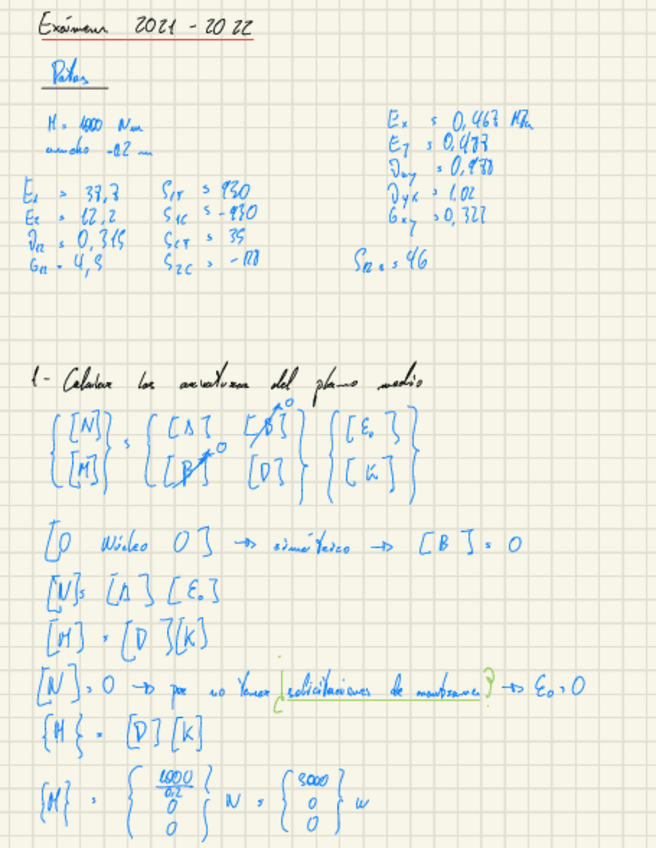 Exámen 2021 - 2022
Datos
M = 1000 Nm
ancho = 0,2 m
E1 = 37,7
E2 = 12,2
ν12 = 0,315
G12 = 4,5
S1T = 930
S1C = -930
S2T = 35
S2C = -118
Ex = 0,467 MPa
Ey = 0,477
νxy = 0,978
νyx = 1,02
Gxy = 0,327
S12 = 46
1- Calcular las curvaturas del plano medio
{[N] [M]} = {[A] [B]→0 [B]→0 [D]} {[ε0] [K]}
[0 Núcleo 0] → simétrico → [B] = 0
[N] = [A] [ε0]
[M] = [D] [K]
[N] = 0 → por no tener ¿solicitaciones de membrana? → ε0 = 0
{M} = [D] [K]
{M} = {1000/0,2 0 0} N = {5000 0 0} N